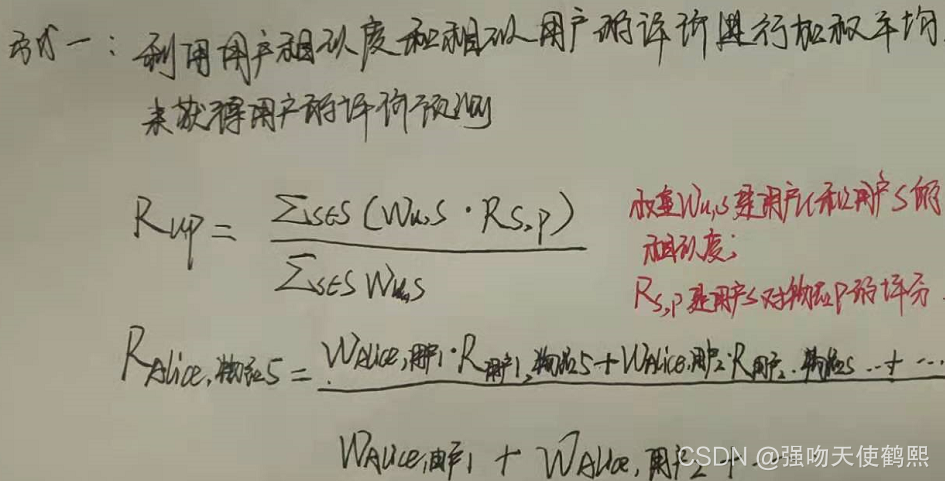 方式一：利用用户相似度和相似用户的评价进行加权平均
来获得用户的评价预测
Rup = Σs∈S (Wu,s · Rs,p) / Σs∈S Wu,s
权重Wu,s是用户u和用户s的
相似度；
Rs,p是用户s对物品p的评分
RAlice,物品5 = WAlice,用户1 · R用户1,物品5 + WAlice,用户2 · R用户2,物品5 ... + ...
WAlice,用户1 + WAlice,用户2 + ...
CSDN @强吻天使鹤熙